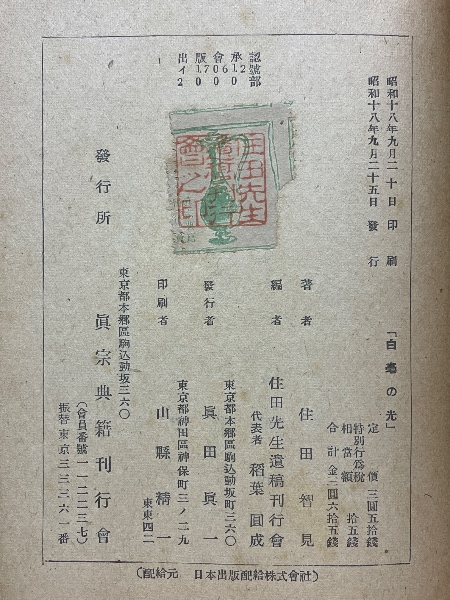 昭和十八年九月二十日 印刷
昭和十八年九月二十五日 發行
出版會承認
住田先生
「白毫の光」
定價 三圓五拾錢
特別行爲稅
相當額 拾五錢
合計金三圓六拾五錢
著者 住田智見
編者 住田先生遺稿刊行會
代表者 稻葉圓成
東京都本郷區駒込動坂町三六〇
發行者 眞田眞一
東京都神田區神保町三ノ二九
印刷者 山縣精一
東東四二
東京都本郷區駒込動坂三六〇
發行所 眞宗典籍刊行會
(會員番號一一二二三七)
振替東京三三三六一番
(配給元 日本出版配給株式會社)